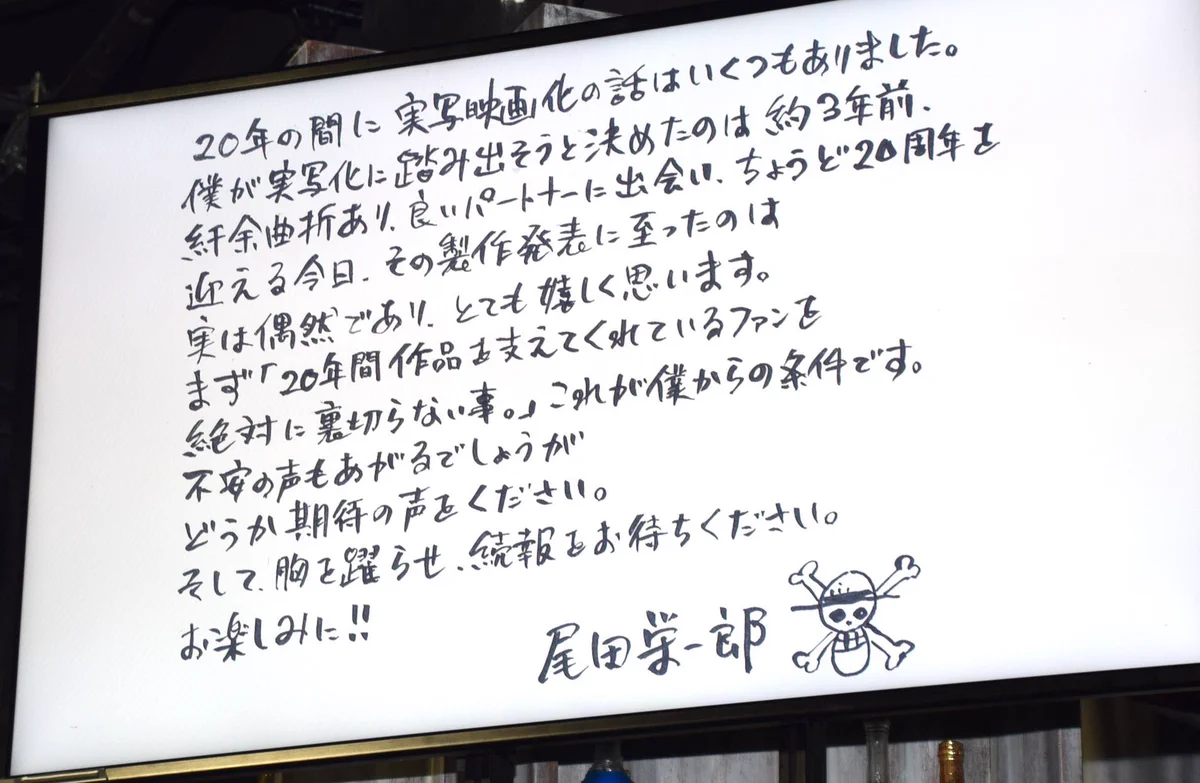 20年の間に 実写映画化の話はいくつもありました。
僕が実写化に踏み出そうと決めたのは 約3年前.
紆余曲折あり、良いパートナーに出会い、ちょうど20周年を
迎える今日、その製作発表に至ったのは
実は偶然であり、とても嬉しく思います。
まず「20年間作品を支えてくれているファンを
絶対に裏切らない事。」これが僕からの条件です。
不安の声もあがるでしょうが
どうか期待の声をください。
そして、胸を躍らせ、続報をお待ちください。
お楽しみに!!
尾田栄一郎